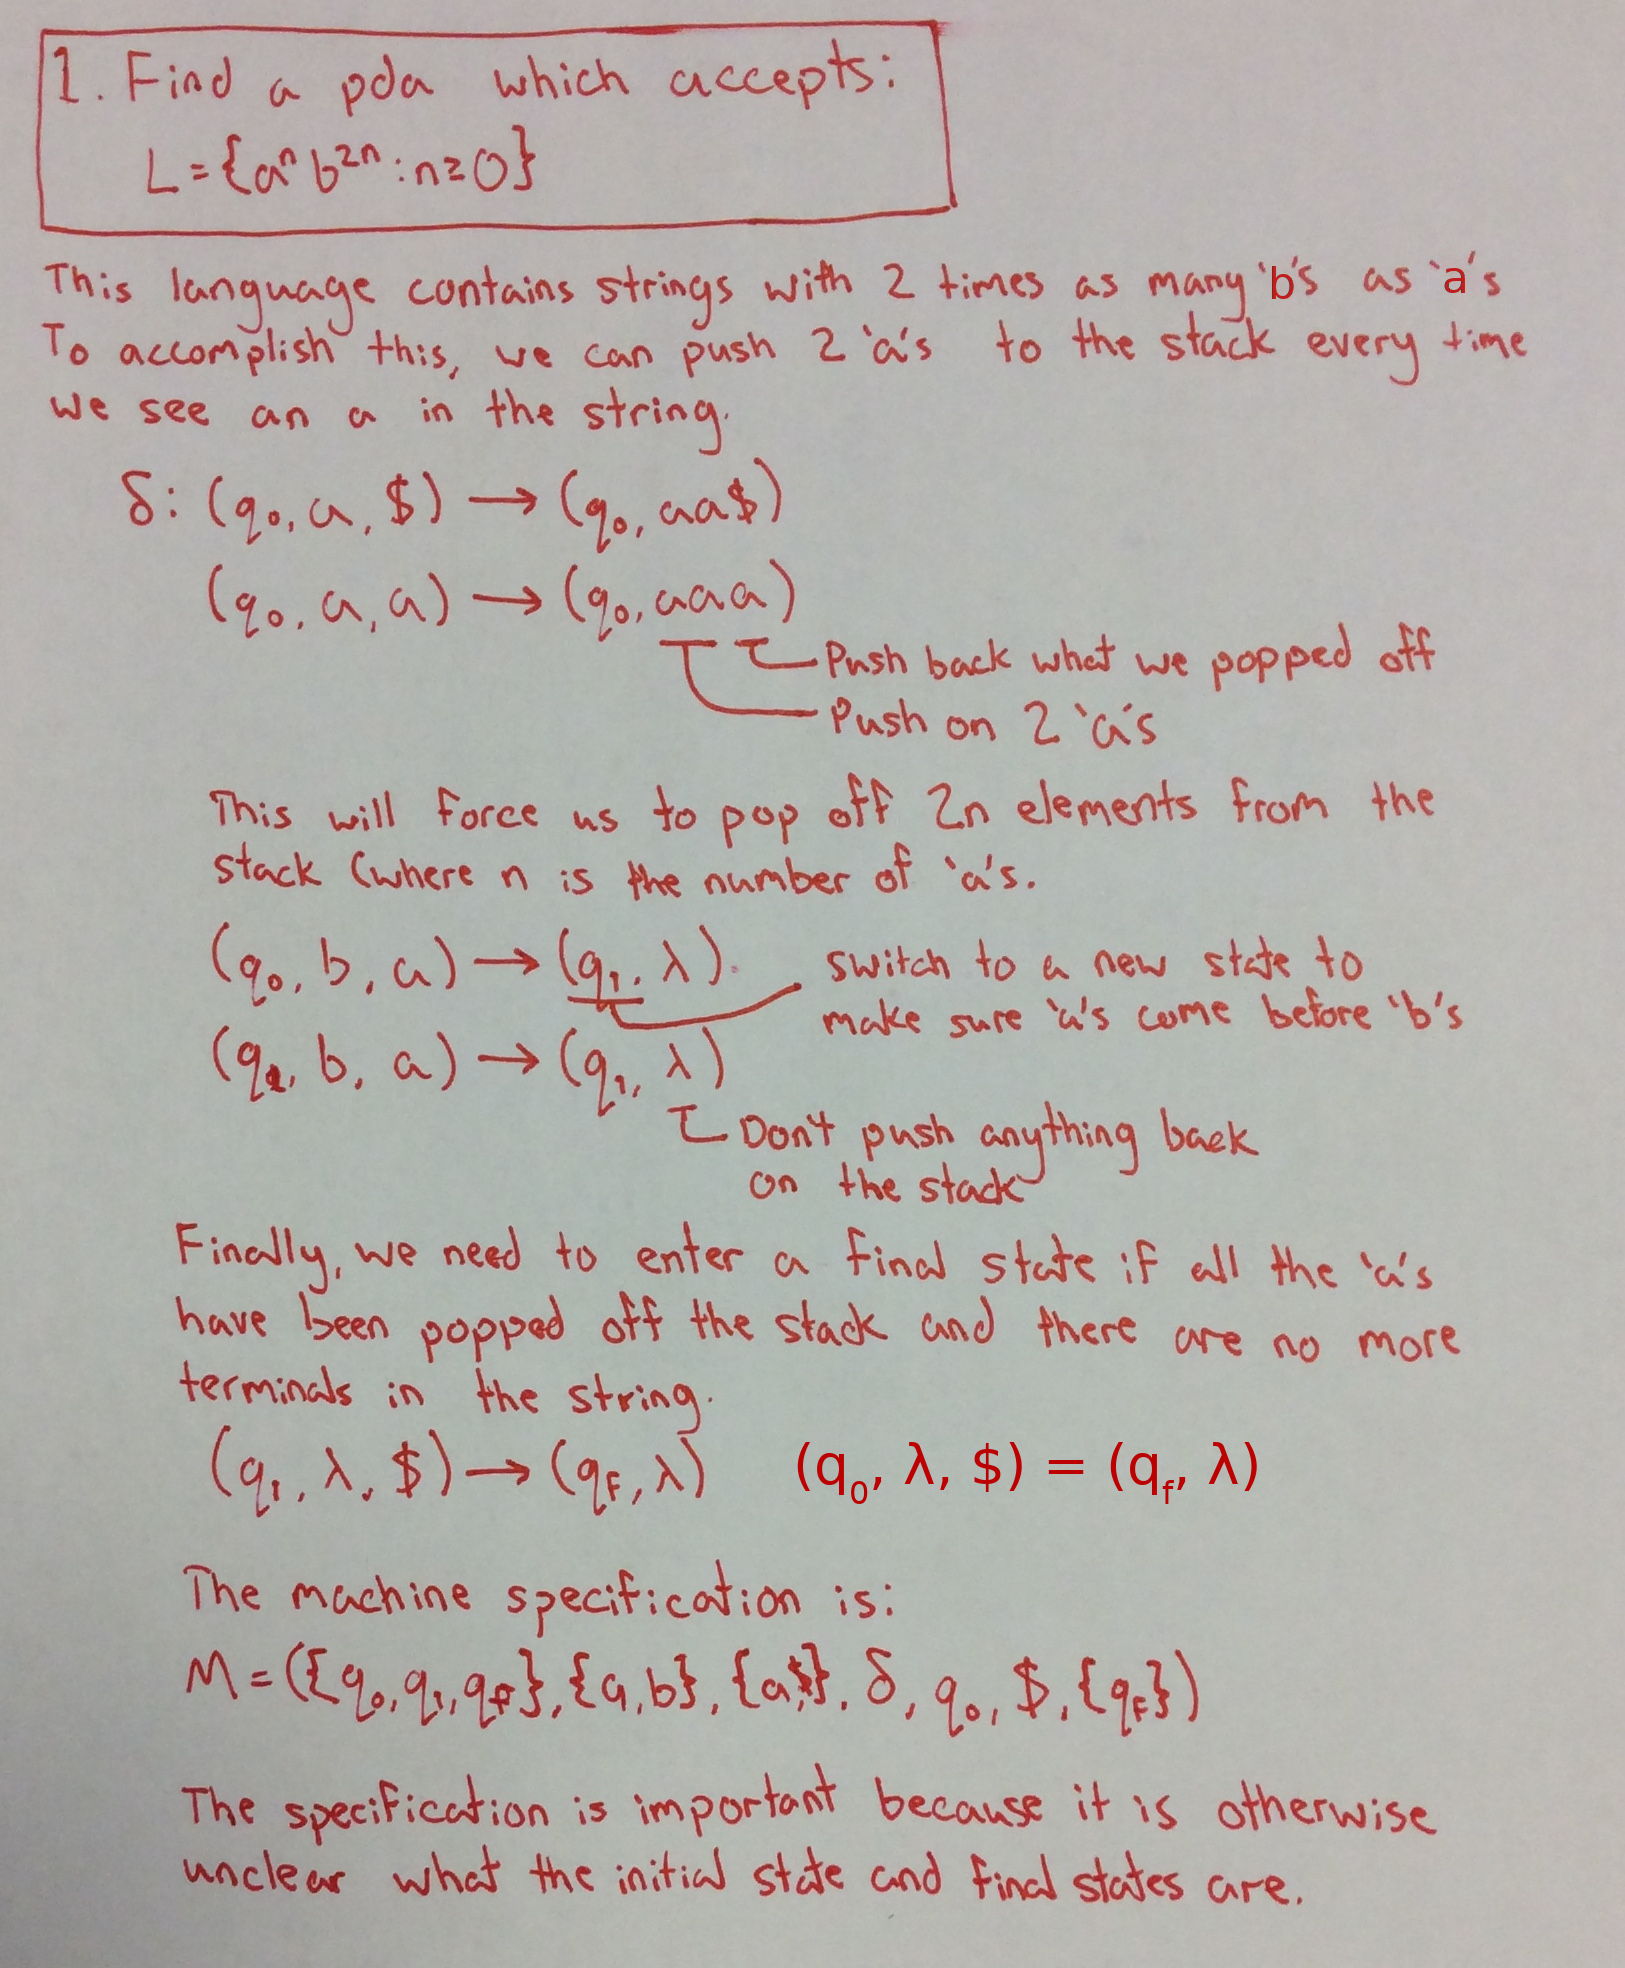 1. Find a pda which accepts:
L = {aⁿb²ⁿ : n ≥ 0}
This language contains strings with 2 times as many 'b's as 'a's
To accomplish this, we can push 2 'a's to the stack every time
we see an a in the string.
δ: (q₀, a, $) → (q₀, aa$)
(q₀, a, a) → (q₀, aaa)
Push back what we popped off
Push on 2 'a's
This will force us to pop off 2n elements from the
stack (where n is the number of 'a's.
(q₀, b, a) → (q₁, λ).
switch to a new state to
make sure 'a's come before 'b's
(q₁, b, a) → (q₁, λ)
Don't push anything back
on the stack
Finally, we need to enter a final state if all the 'a's
have been popped off the stack and there are no more
terminals in the string.
(q₁, λ, $) → (qF, λ) (q₀, λ, $) = (qf, λ)
The machine specification is:
M = ({q₀, q₁, qF}, {a, b}, {a, $}, δ, q₀, $, {qF})
The specification is important because it is otherwise
unclear what the initial state and final states are.